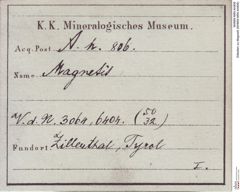 K. K. Mineralogisches Museum.
Acq. Post A. h. 806.
Name Magnetit
V. d. N. 3064, 6404. (50/32)
Fundort Zillerthal, Tyrol
I.